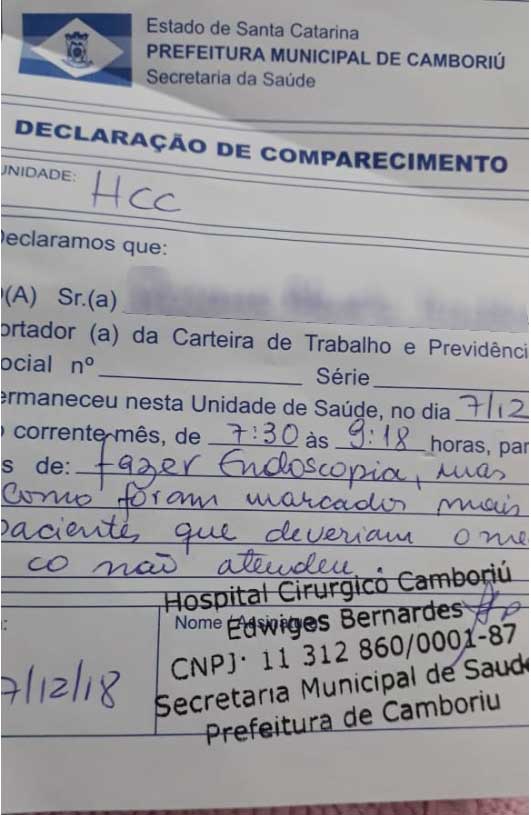 Estado de Santa Catarina
PREFEITURA MUNICIPAL DE CAMBORIÚ
Secretaria da Saúde
DECLARAÇÃO DE COMPARECIMENTO
UNIDADE: HCC
Declaramos que:
(A) Sr.(a)
ortador (a) da Carteira de Trabalho e Previdênci
ocial nº Série
ermaneceu nesta Unidade de Saúde, no dia 7/12
corrente mês, de 7:30 às 9:18 horas, par
s de: fazer Endoscopia, mas
como foram marcados mais
pacientes que deveriam o mé
co não atendeu.
Hospital Cirurgico Camboriú
Nome / Assinatura
Edwiges Bernardes
CNPJ· 11 312 860/0001-87
7/12/18
Secretaria Municipal de Saude
Prefeitura de Camboriu